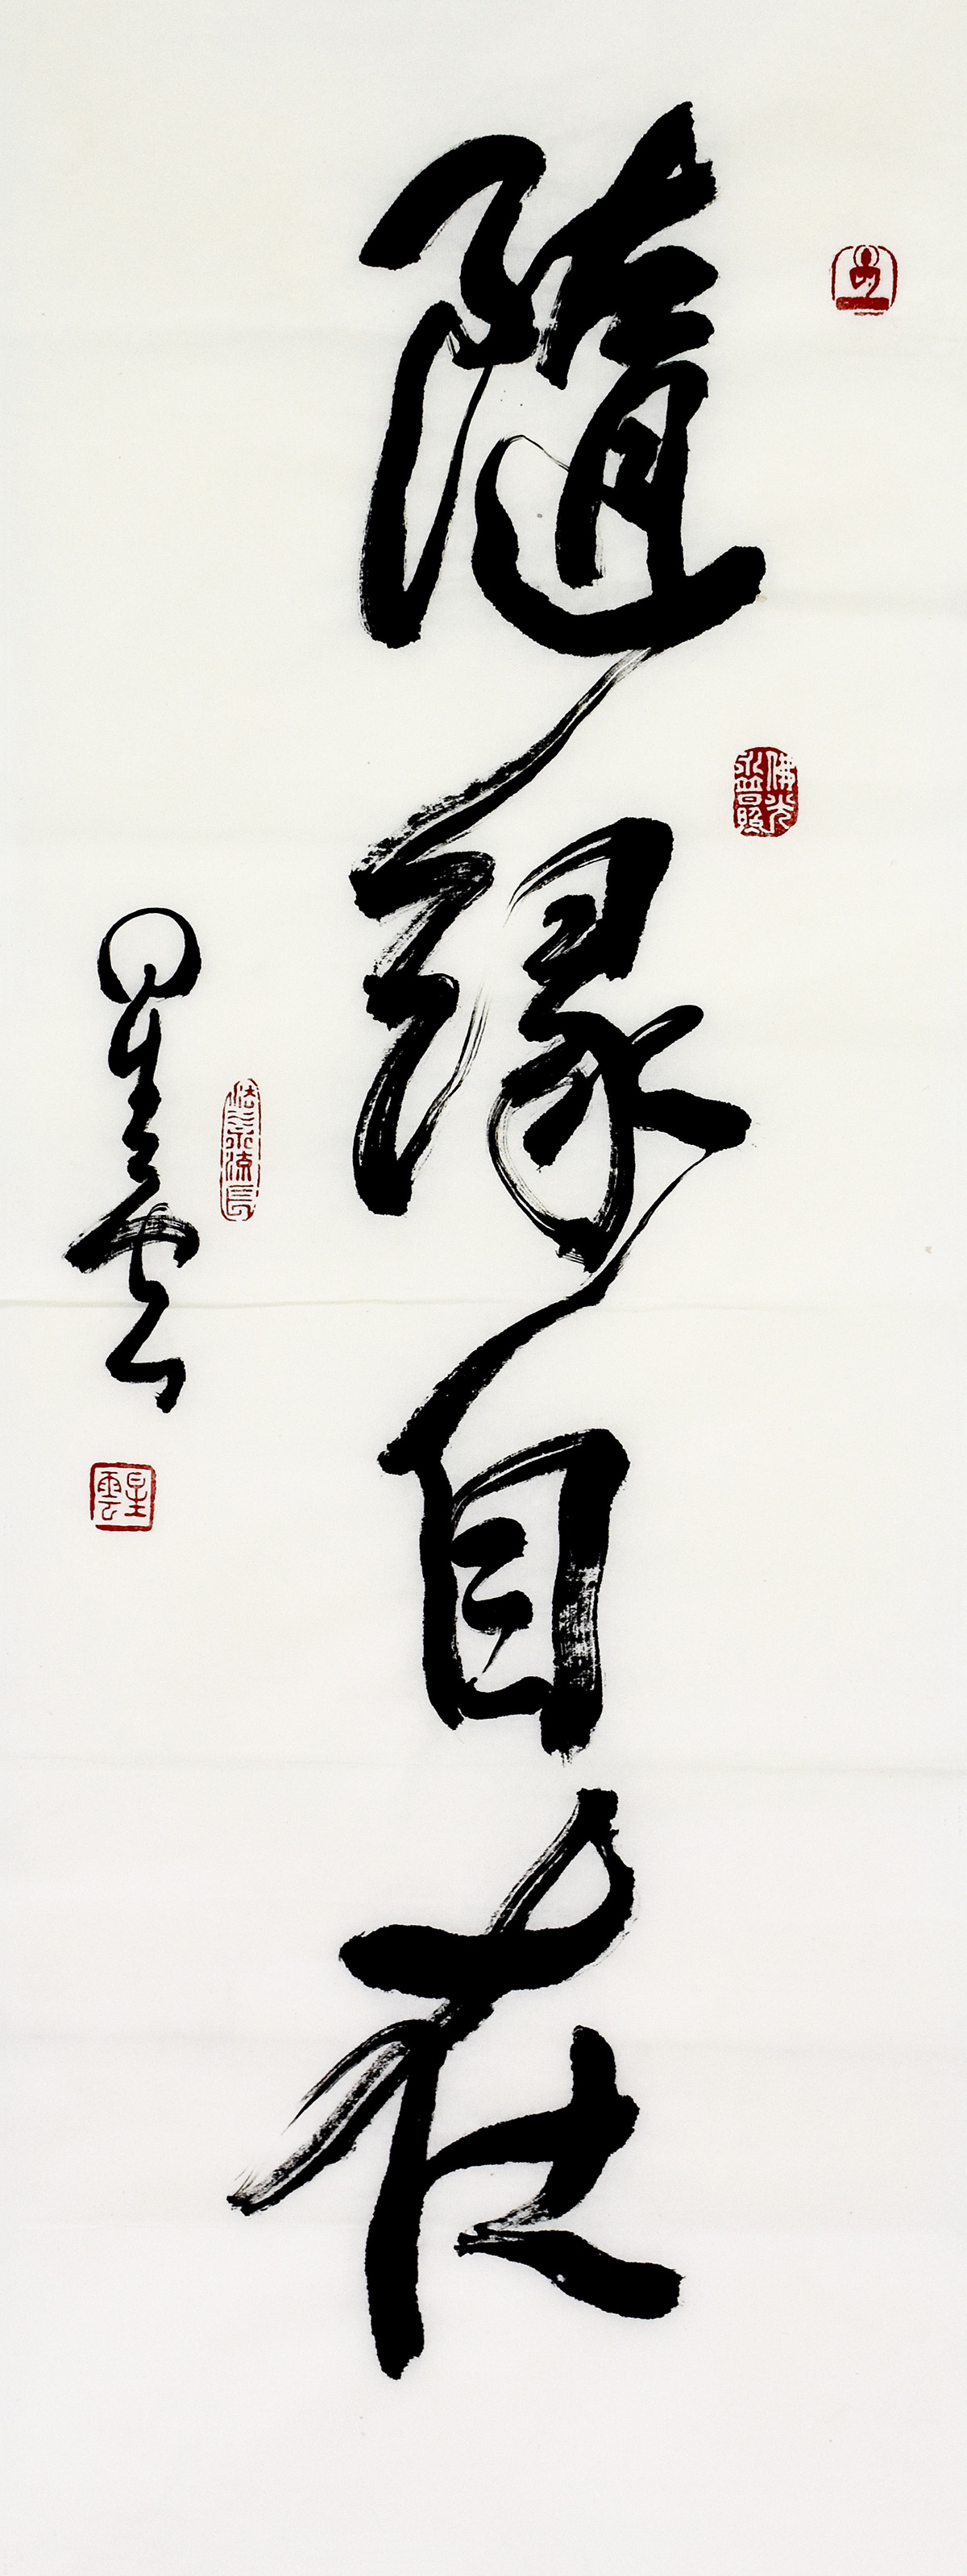 隨緣自在
佛光永普照
法水永流長
星雲
星雲